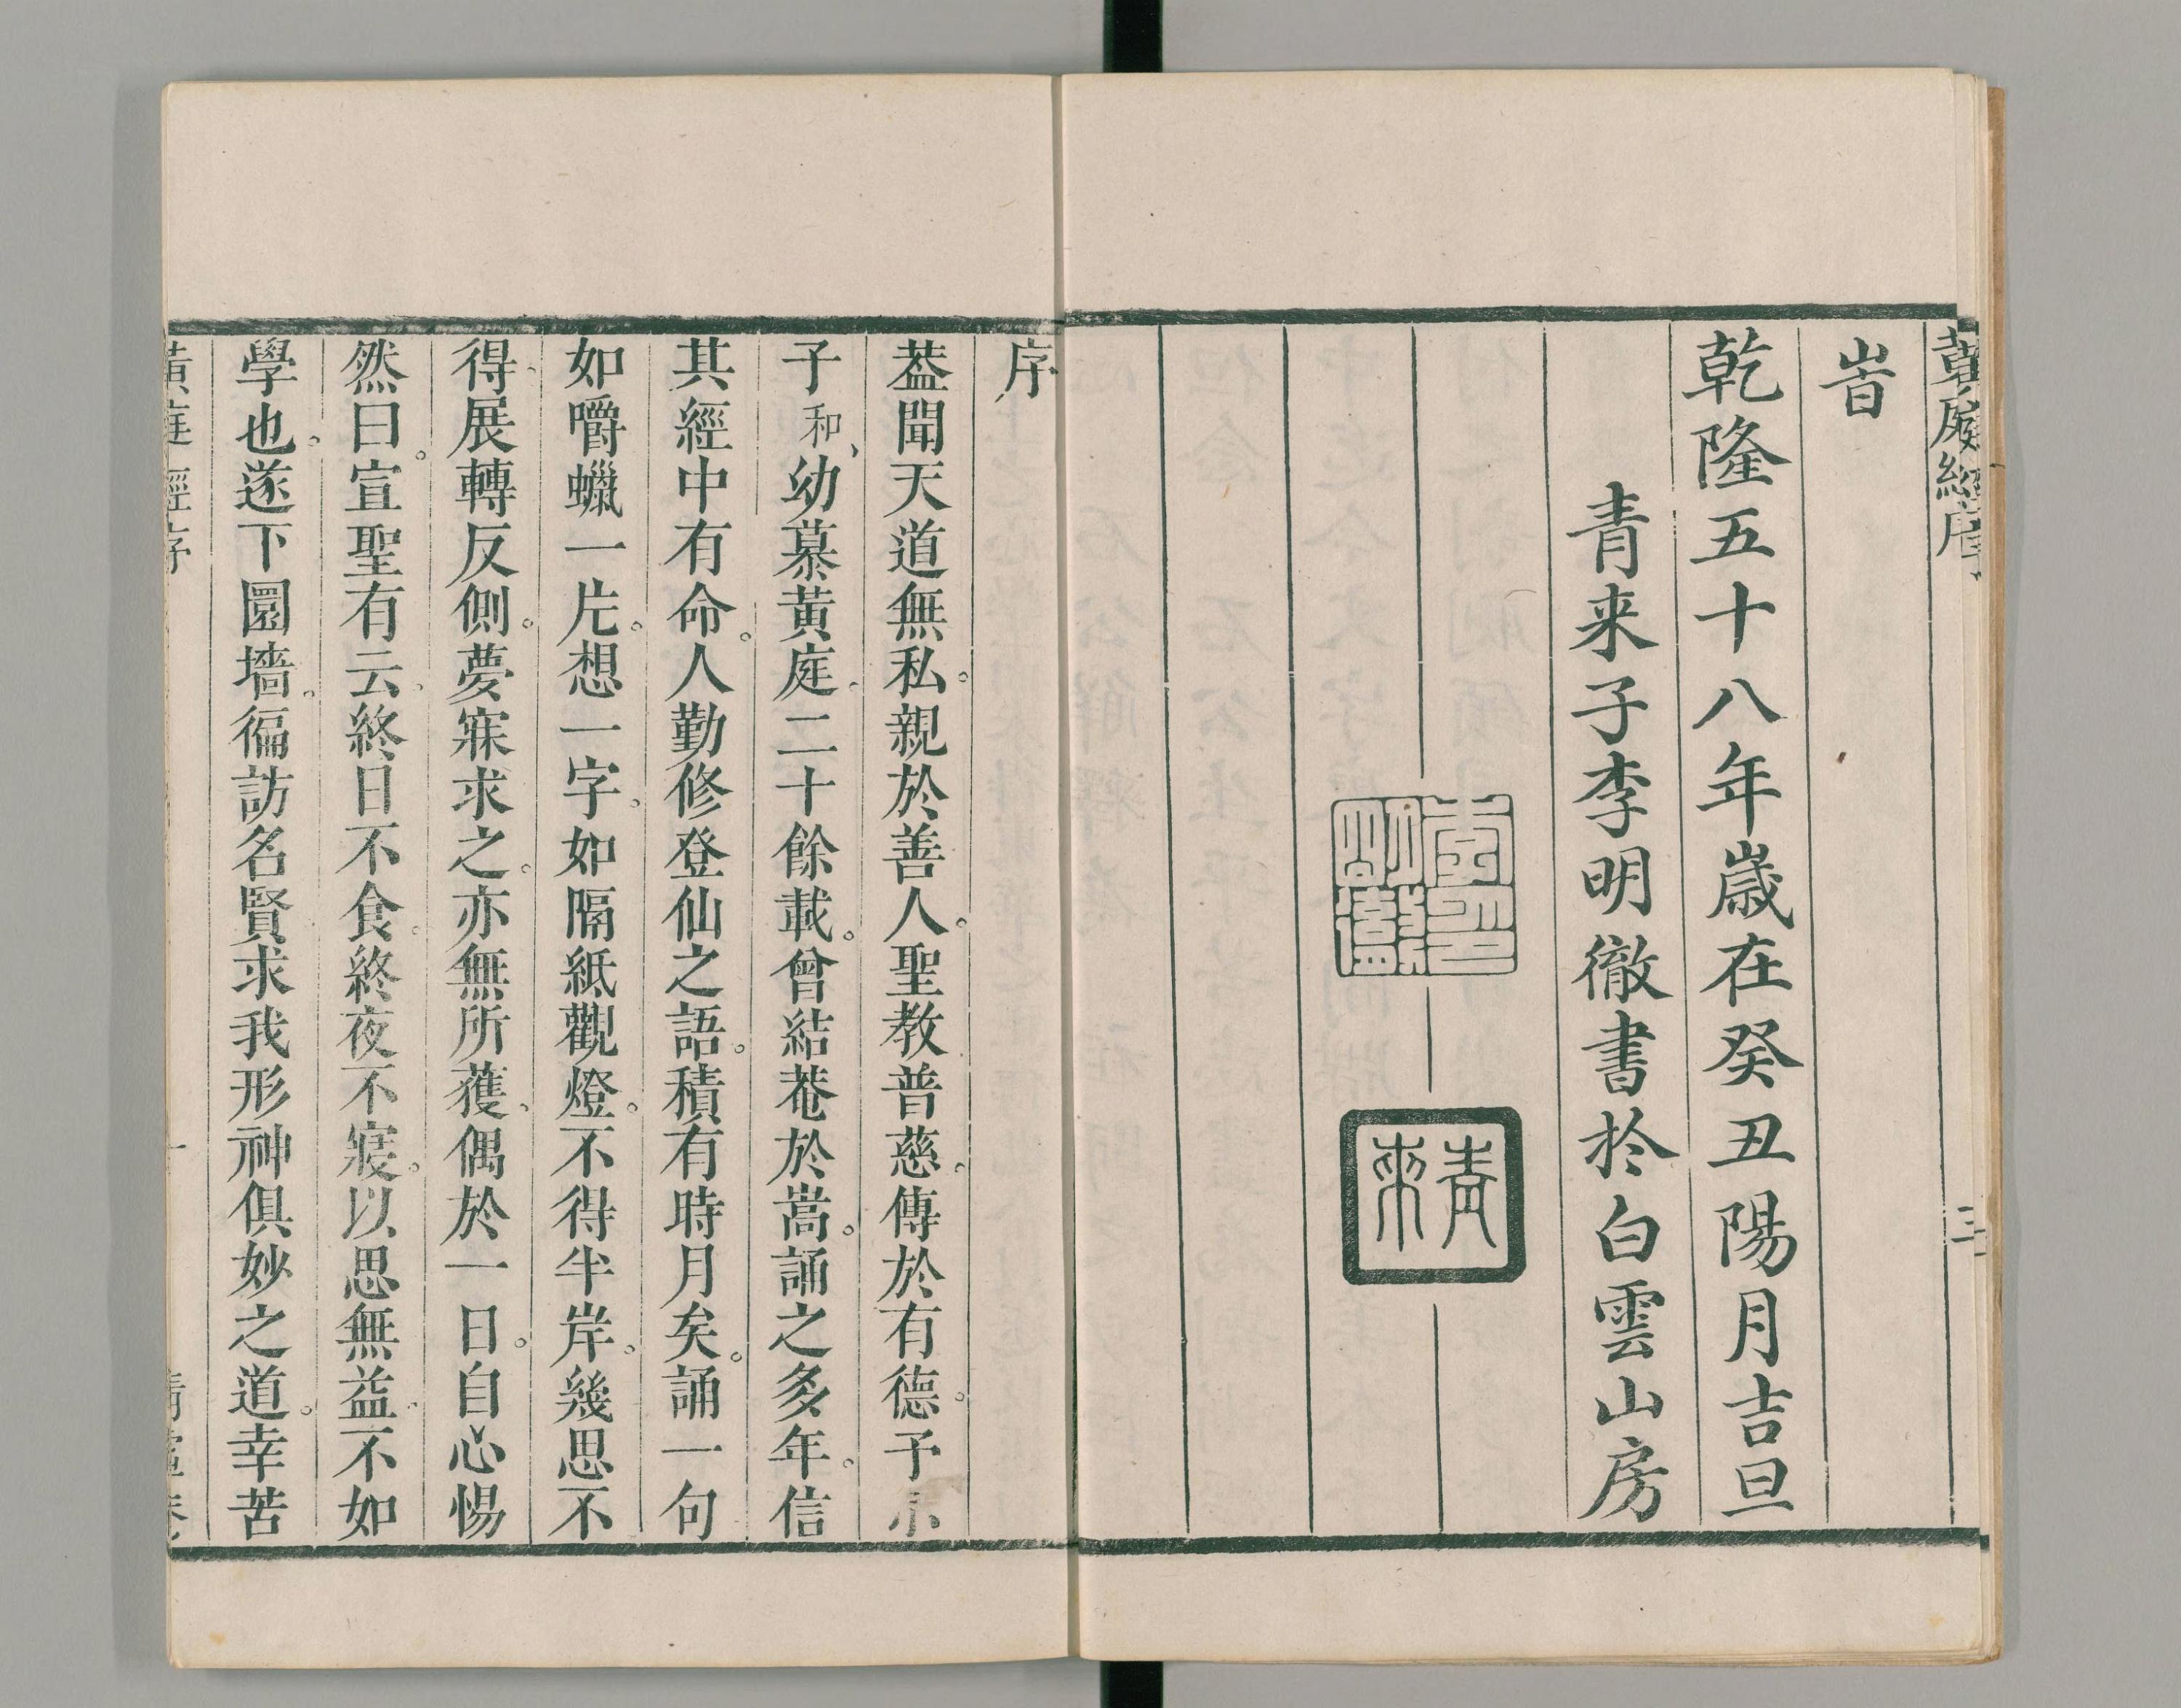 黃庭經序
三
旹
乾隆五十八年歲在癸丑陽月吉旦
青来子李明徹書於白雲山房
青來
序
葢聞天道無私。親於善人。聖教普慈。傳於有德。予
子和、幼慕黃庭。二十餘載。曾結菴於嵩。誦之多年。信
其經中有命。人勤修登仙之語。積有時月矣。誦一句
如嚼蠟一片。想一字。如隔紙觀燈。不得半岸。幾思不
得。展轉反側。夢寐求之。亦無所獲。偶於一日。自心惕
然曰。宣聖有云。終日不食。終夜不寢。以思無益。不如
學也。遂下圜墻。徧訪名賢求我形神俱妙之道。幸苦
黃庭經序
一